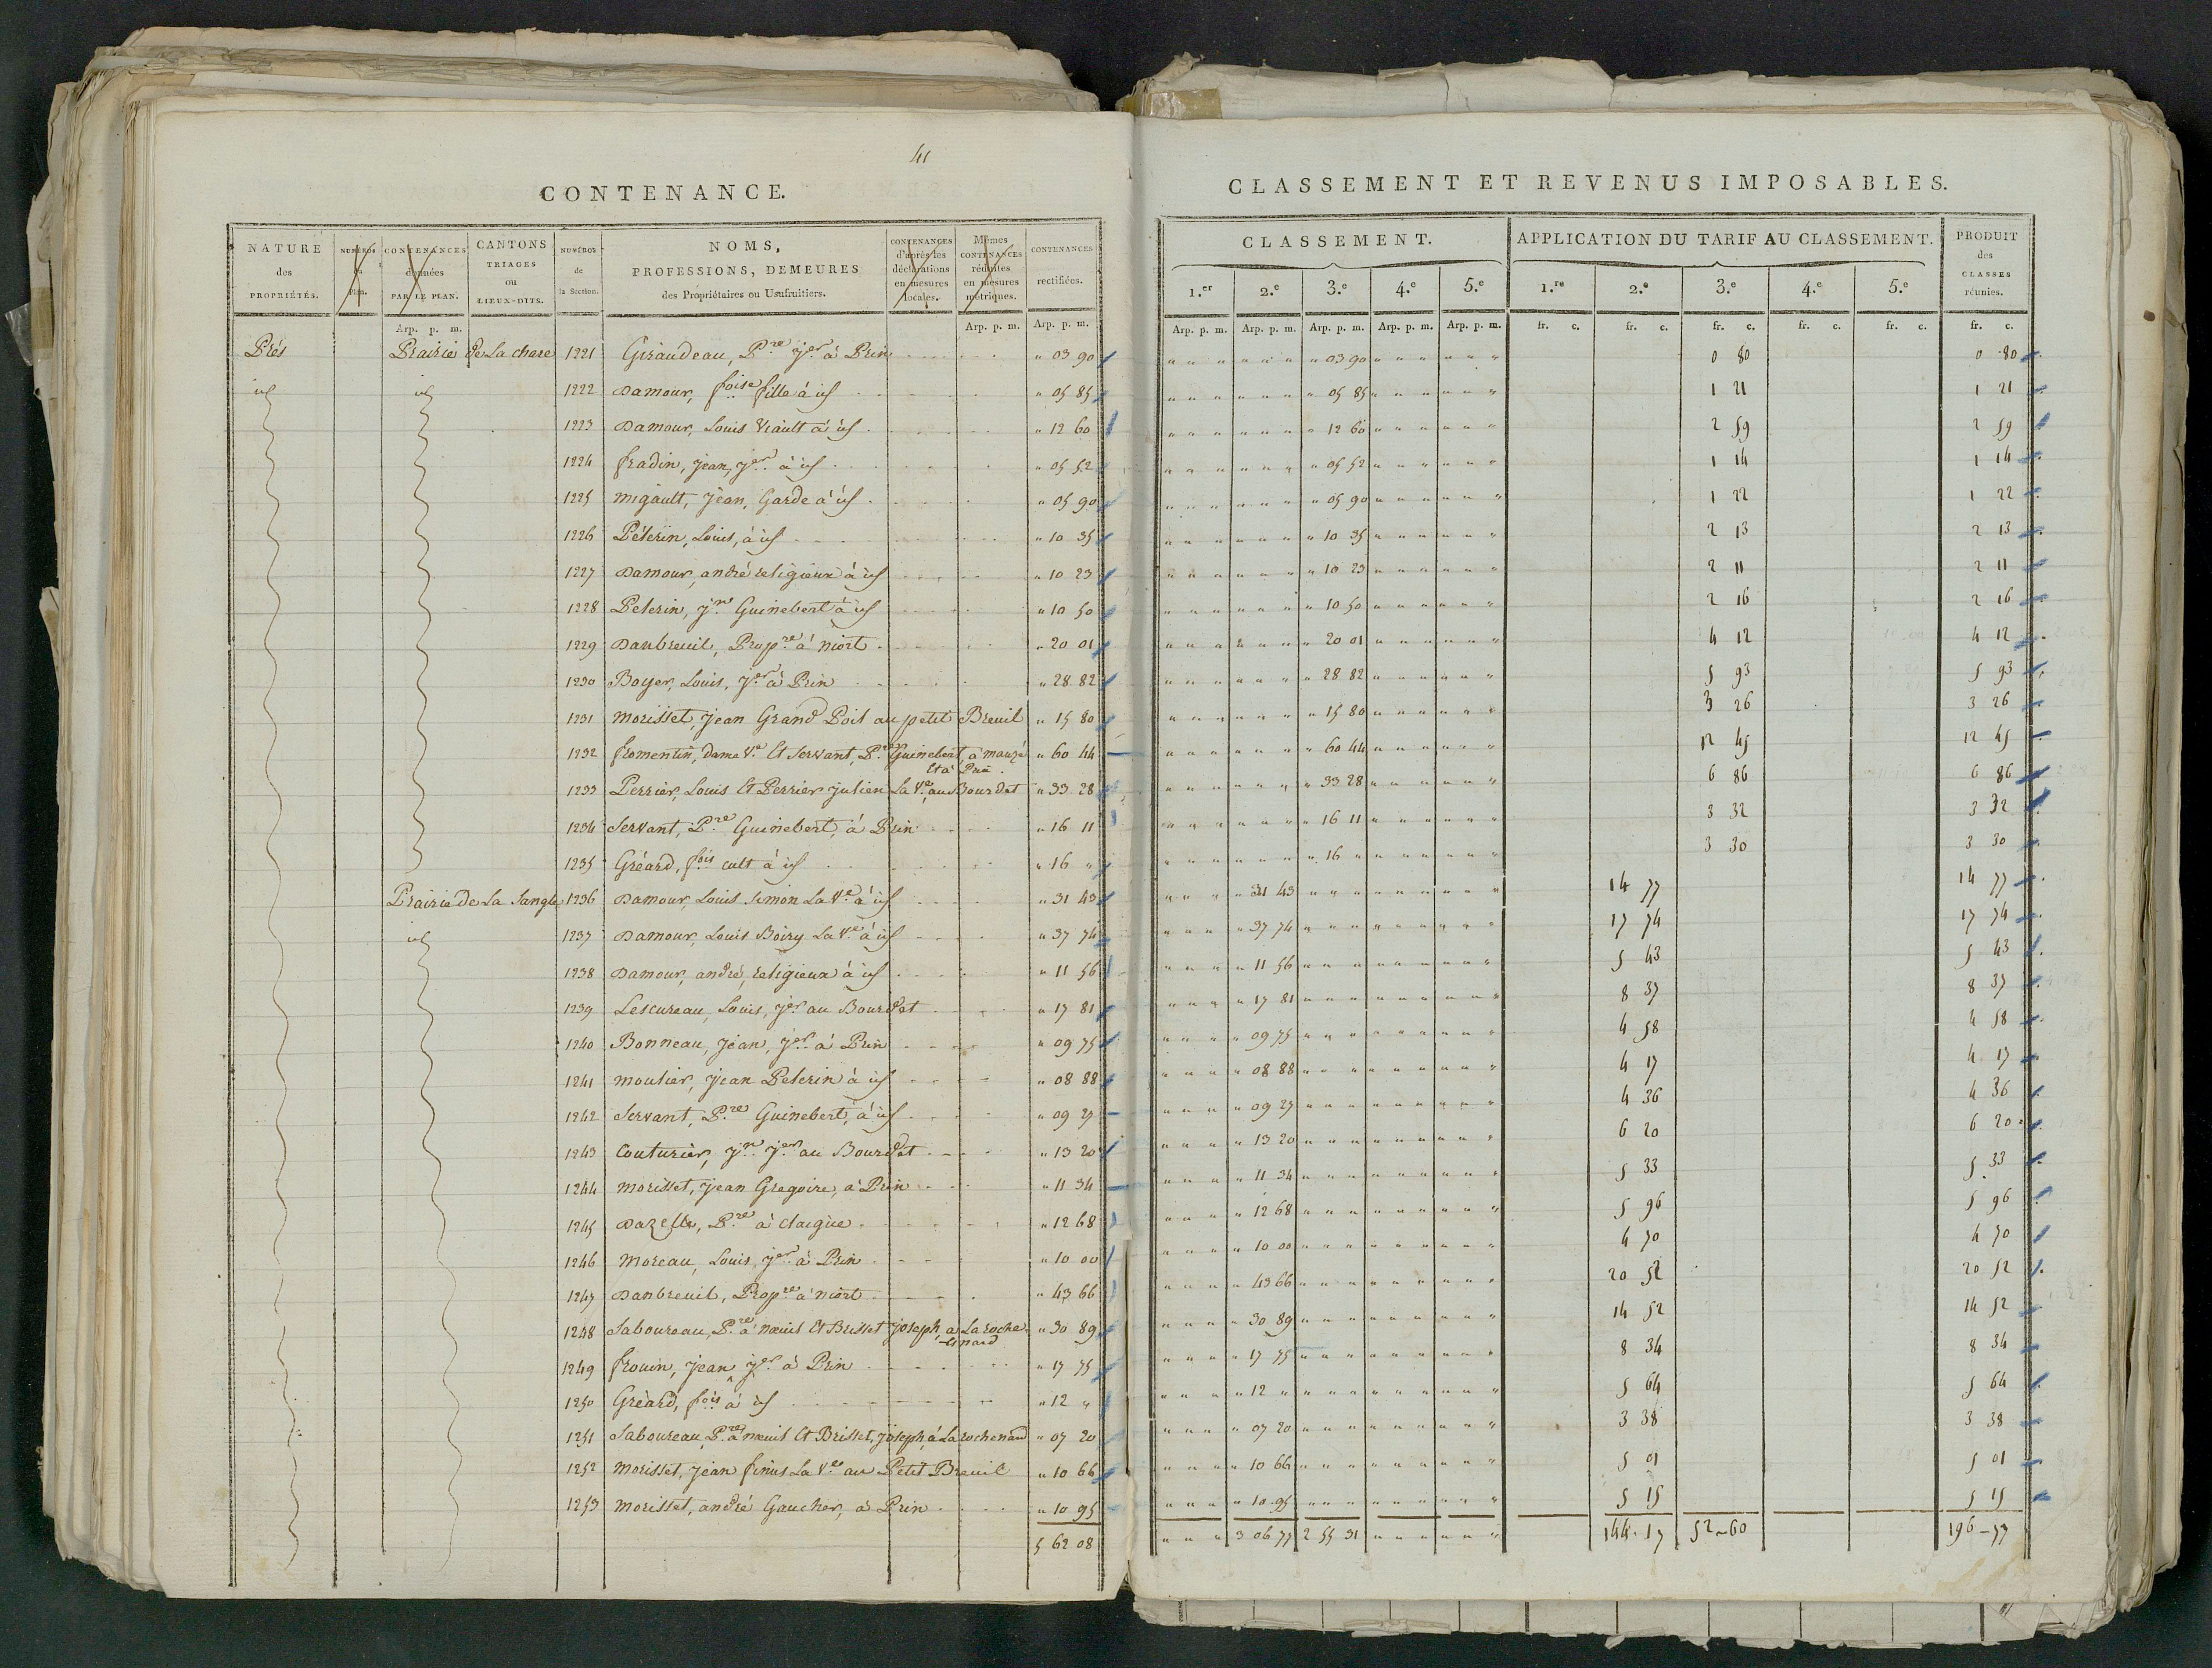 41
CONTENANCE.
NATURE des PROPRIÉTÉS. NUMÉROS du Plan. CONTENANCES données PAR LE PLAN. CANTONS TRIAGES ou LIEUX-DITS. NUMÉROS de la Section. NOMS, PROFESSIONS, DEMEURES des Propriétaires ou Usufruitiers. CONTENANCES d'après les déclarations en mesures locales. Mêmes CONTENANCES réduites en mesures métriques. CONTENANCES rectifiées.
Arp. p. m. Arp. p. m. Arp. p. m.
Prés Prairie de La chare 1221 Giraudeau, P.re j.er à Prin " 03 90
id id 1222 Damour, f.oise fille à id " 05 85
1223 Damour, Louis Viault à id " 12 60
1224 fradin, jean, j.er à id " 05 52
1225 migault, jean, Garde à id " 05 90
1226 Pélerin, Louis, à id " 10 35
1227 Damour, andré religieux à id " 10 23
1228 Pelerin, j.n Guinebert à id " 10 50
1229 Danbreuil, Prop.re à niort " 20 01
1230 Boyer, Louis, j.er à Prin " 28 82
1231 morisset, jean Grand Poil au petit Breuil " 15 80
1232 fromentin, dame V.e Et Servant, P.re Guinebert, à mauzé Et à Prin. " 60 44
1233 Perrier, Louis Et Perrier julien La V.e, au Bourdet " 33 28
1234 Servant, P.re Guinebert, à Prin " 16 11
1235 Gréard, f.ois cult à id " 16 "
Prairie de La Sangle 1236 Damour, Louis Simon La V.e à id " 31 43
id 1237 Damour, Louis Boiry La V.e à id " 37 74
1238 Damour, andré, religieux à id " 11 56
1239 Lescureau, Louis, j.er au Bourdet " 17 81
1240 Bonneau, jean, j.er à Prin " 09 75
1241 moulier, jean Pelerin à id " 08 88
1242 Servant, P.re Guinebert, à id " 09 27
1243 Couturier, j.n j.er au Bourdet " 13 20
1244 morisset, jean Gregoire, à Prin " 11 34
1245 Dazelle, P.re à claigue " 12 68
1246 moreau, Louis, j.er à Prin " 10 00
1247 Danbreuil, Prop.re à niort " 43 66
1248 Saboureau, P.re à nœuil Et Brisset joseph, a La roche-énard " 30 89
1249 frouin, jean j.er à Prin " 17 75
1250 Gréard, f.ois à id " 12 "
1251 Saboureau, P.re à nœuil Et Brisset, joseph, à La rochenard " 07 20
1252 morisset, jean finus La V.e au Petit Breuil " 10 66
1253 morisset, andré Gaucher, à Prin " 10 95
5 62 08
CLASSEMENT ET REVENUS IMPOSABLES.
CLASSEMENT. APPLICATION DU TARIF AU CLASSEMENT. PRODUIT des CLASSES réunies.
1.er 2.e 3.e 4.e 5.e 1.re 2.e 3.e 4.e 5.e
Arp. p. m. Arp. p. m. Arp. p. m. Arp. p. m. Arp. p. m. fr. c. fr. c. fr. c. fr. c. fr. c. fr. c.
" 03 90 0 80 0 80
" 05 85 1 21 1 21
" 12 60 2 59 2 59
" 05 52 1 14 1 14
" 05 90 1 22 1 22
" 10 35 2 13 2 13
" 10 23 2 11 2 11
" 10 50 2 16 2 16
" 20 01 4 12 4 12
" 28 82 5 93 5 93
" 15 80 3 26 3 26
" 60 44 12 45 12 45
" 33 28 6 86 6 86
" 16 11 3 32 3 32
" 16 " 3 30 3 30
" 31 43 14 77 14 77
" 37 74 17 74 17 74
" 11 56 5 43 5 43
" 17 81 8 37 8 37
" 09 75 4 58 4 58
" 08 88 4 17 4 17
" 09 27 4 36 4 36
" 13 20 6 20 6 20
" 11 34 5 33 5 33
" 12 68 5 96 5 96
" 10 00 4 70 4 70
" 43 66 20 52 20 52
" 30 89 14 52 14 52
" 17 75 8 34 8 34
" 12 " 5 64 5 64
" 07 20 3 38 3 38
" 10 66 5 01 5 01
" 10 95 5 15 5 15
" " " 3 06 77 2 55 31 " " " " " " 144 17 52 60 196 77